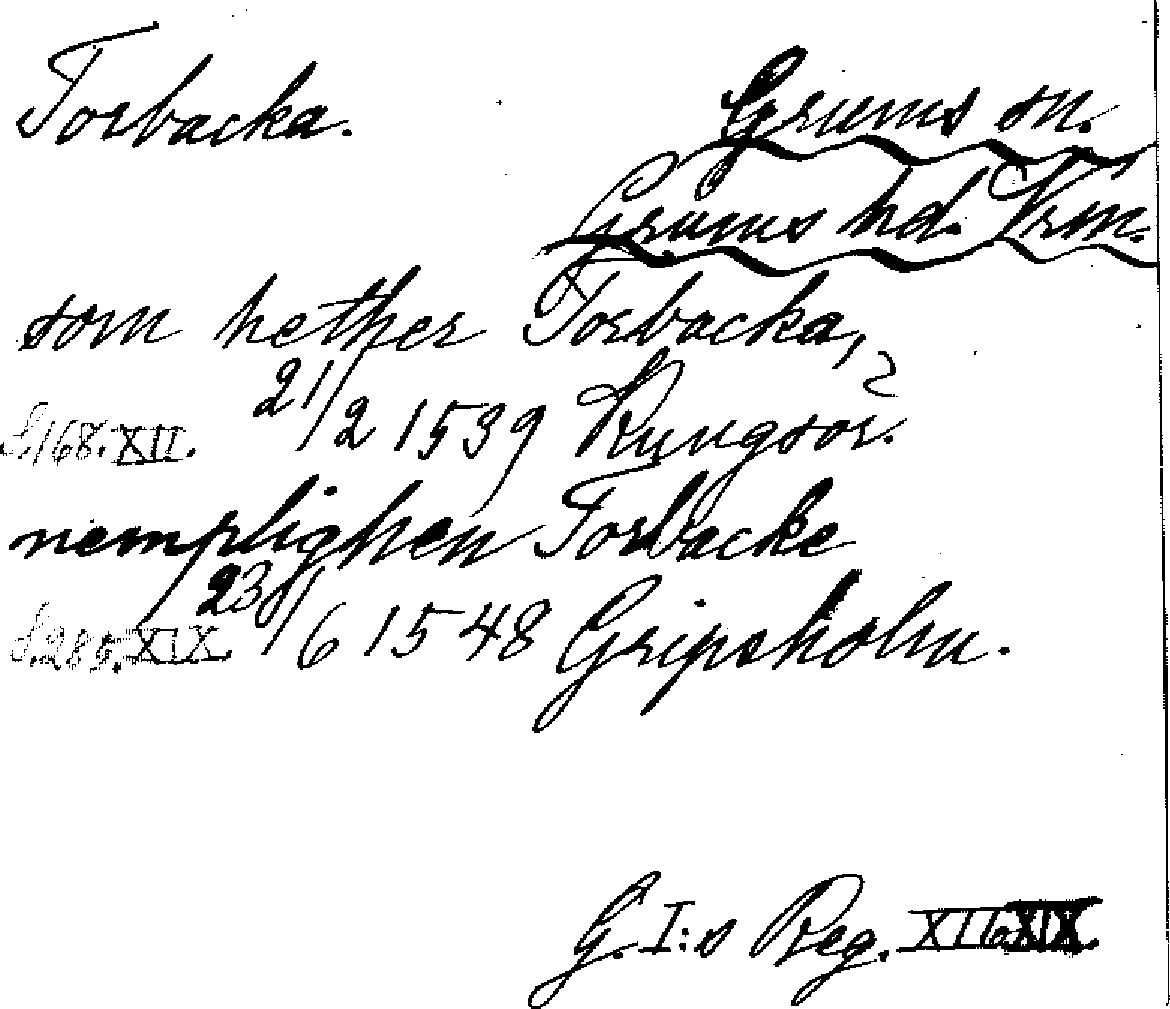 Torbacka. Grums sn.
Grums hd. Vrm.
som hether Torbacka,
S. 168. XII. 21/2 1539 Kungsör.
nemplighen Torbacke
S. 285. XIX. 23/6 1548 Gripsholm.
G. I:s Reg. XII o. XIX.